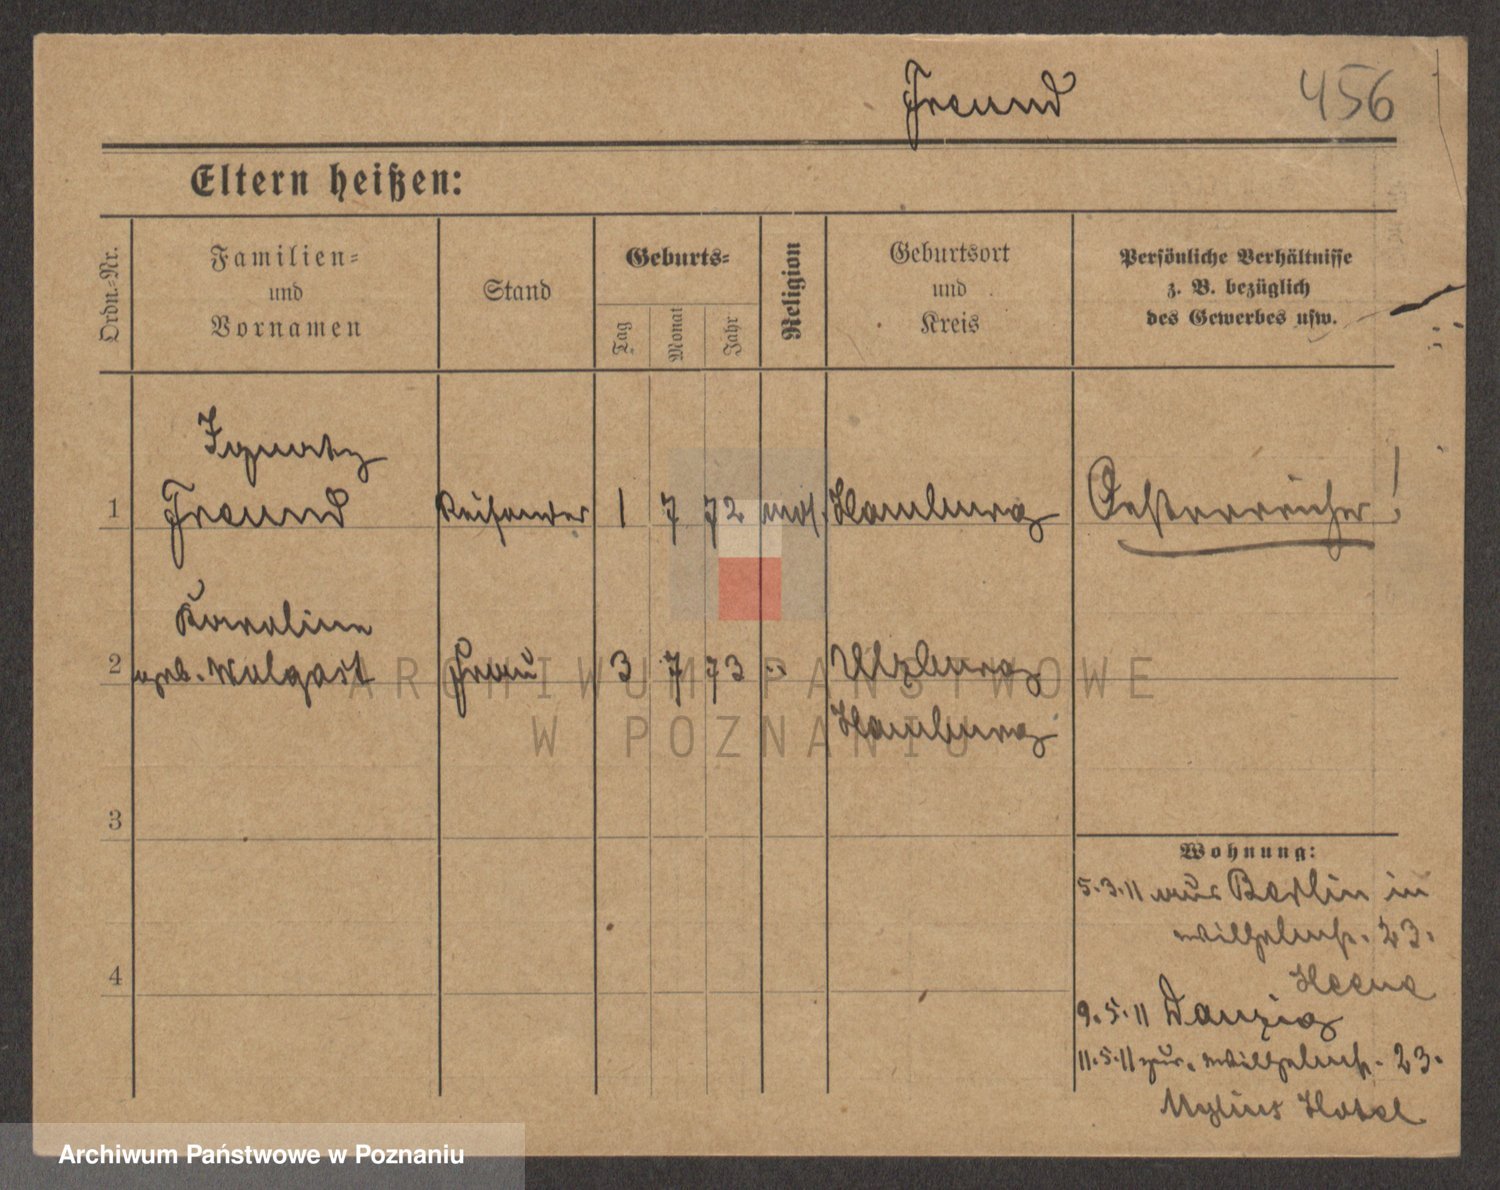 Freund
456
Eltern heißen:
Ordn.-Nr.
Familien-
und
Vornamen
Stand
Geburts-
Tag
Monat
Jahr
Religion
Geburtsort
und
Kreis
Persönliche Verhältnisse
z. B. bezüglich
des Gewerbes usw.
Ignatz
1 Freund Reisender 1 7 72 mos. Hamburg Oesterreicher!
Karoline
2 geb. Wolgast Frau 3 7 73 " Ulzburg
Hamburg
3
4
Wohnung:
5.3.11 aus Berlin in
Wilhelmstr. 23.
9.5.11 Danzig
11.5.11 zur. Wilhelmstr. 23.
Mylius Hotel
ARCHIWUM PAŃSTWOWE
W POZNANIU
Archiwum Państwowe w Poznaniu